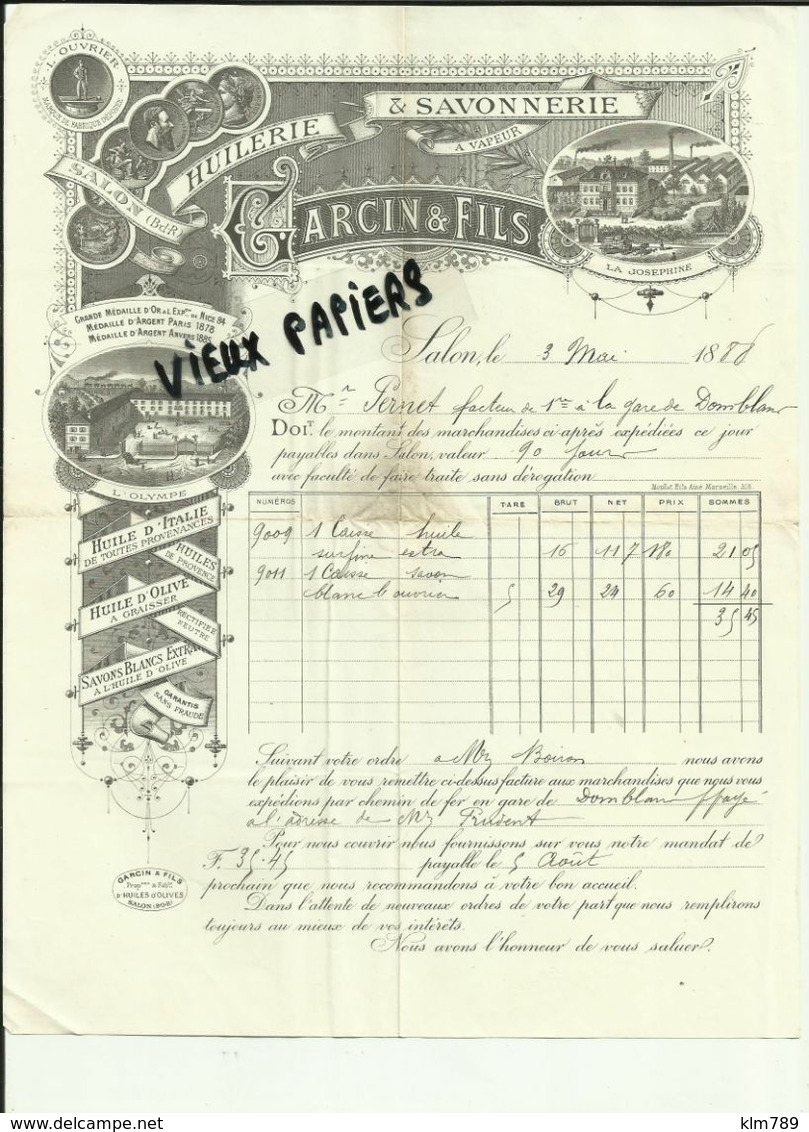 L'OUVRIER
MARQUE DE FABRIQUE DÉPOSÉE
HUILERIE & SAVONNERIE
A VAPEUR
SALON (B.d.R)
GARCIN & FILS
LA JOSEPHINE
GRANDE MÉDAILLE D'OR A L'EXPon DE NICE 84
MÉDAILLE D'ARGENT PARIS 1878
MÉDAILLE D'ARGENT ANVERS 1885
VIEUX PAPIERS
L'OLYMPE
Salon, le 3 Mai 1886
Mr Pernet facteur de 1re à la gare de Domblans
DOIT le montant des marchandises ci-après expédiées ce jour
payables dans Salon, valeur 90 jours
avec faculté de faire traite sans dérogation
Moullot Fils Ainé Marseille
NUMÉROS TARE BRUT NET PRIX SOMMES
9009 1 Caisse huile
surfine extra 16 11 7 180 21 05
9011 1 Caisse savon
blanc l'ouvrier 5 29 24 60 14 40
35 45
HUILE D'ITALIE
DE TOUTES PROVENANCES
HUILES
DE PROVENCE
HUILE D'OLIVE
A GRAISSER
RECTIFIÉE
NEUTRE
SAVONS BLANCS EXTRA
A L'HUILE D'OLIVE
GARANTIS
SANS FRAUDE
Suivant votre ordre à Mr Boiron nous avons
le plaisir de vous remettre ci-dessus facture aux marchandises que nous vous
expédions par chemin de fer en gare de Domblans ffayé
à l'adresse de Mr Prudent
Pour nous couvrir nous fournissons sur vous notre mandat de
F. 35.45 payable le 5 Août
prochain que nous recommandons à votre bon accueil.
Dans l'attente de nouveaux ordres de votre part que nous remplirons
toujours au mieux de vos intérêts.
Nous avons l'honneur de vous saluer.
GARCIN & FILS
D'HUILES D'OLIVES
SALON (BDR)
delcampe.net
klm789